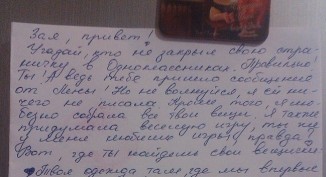 Зая, привет!
Угадай, кто не закрыл свою стра-
ничку в Одноклассниках. Правильно!
Ты! А ведь тебе пришло сообщение
от Ленсы! Но не волнуйся, я ей ни-
чего не писала. Кроме того, я лю-
безно собрала все твои вещи. Я также
придумала веселую игру, ты же
у меня любишь игры, правда?
Вот, где ты найдешь свои вещички
Твоя одежда там, где мы впервые